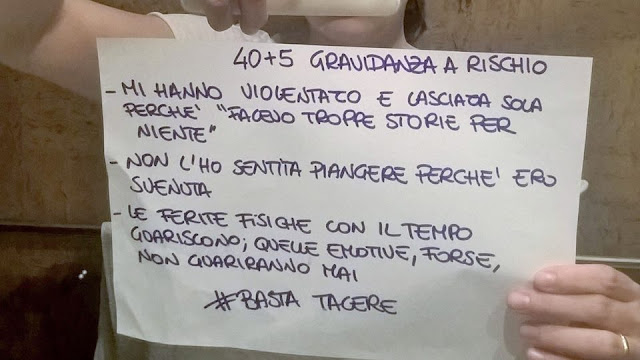 40+5 GRAVIDANZA A RISCHIO
- MI HANNO VIOLENTATO E LASCIATA SOLA
PERCHE' "FACEVO TROPPE STORIE PER
NIENTE"
- NON L'HO SENTITA PIANGERE PERCHE' ERO
SVENUTA
- LE FERITE FISICHE CON IL TEMPO
GUARISCONO; QUELLE EMOTIVE, FORSE,
NON GUARIRANNO MAI
#BASTA TACERE